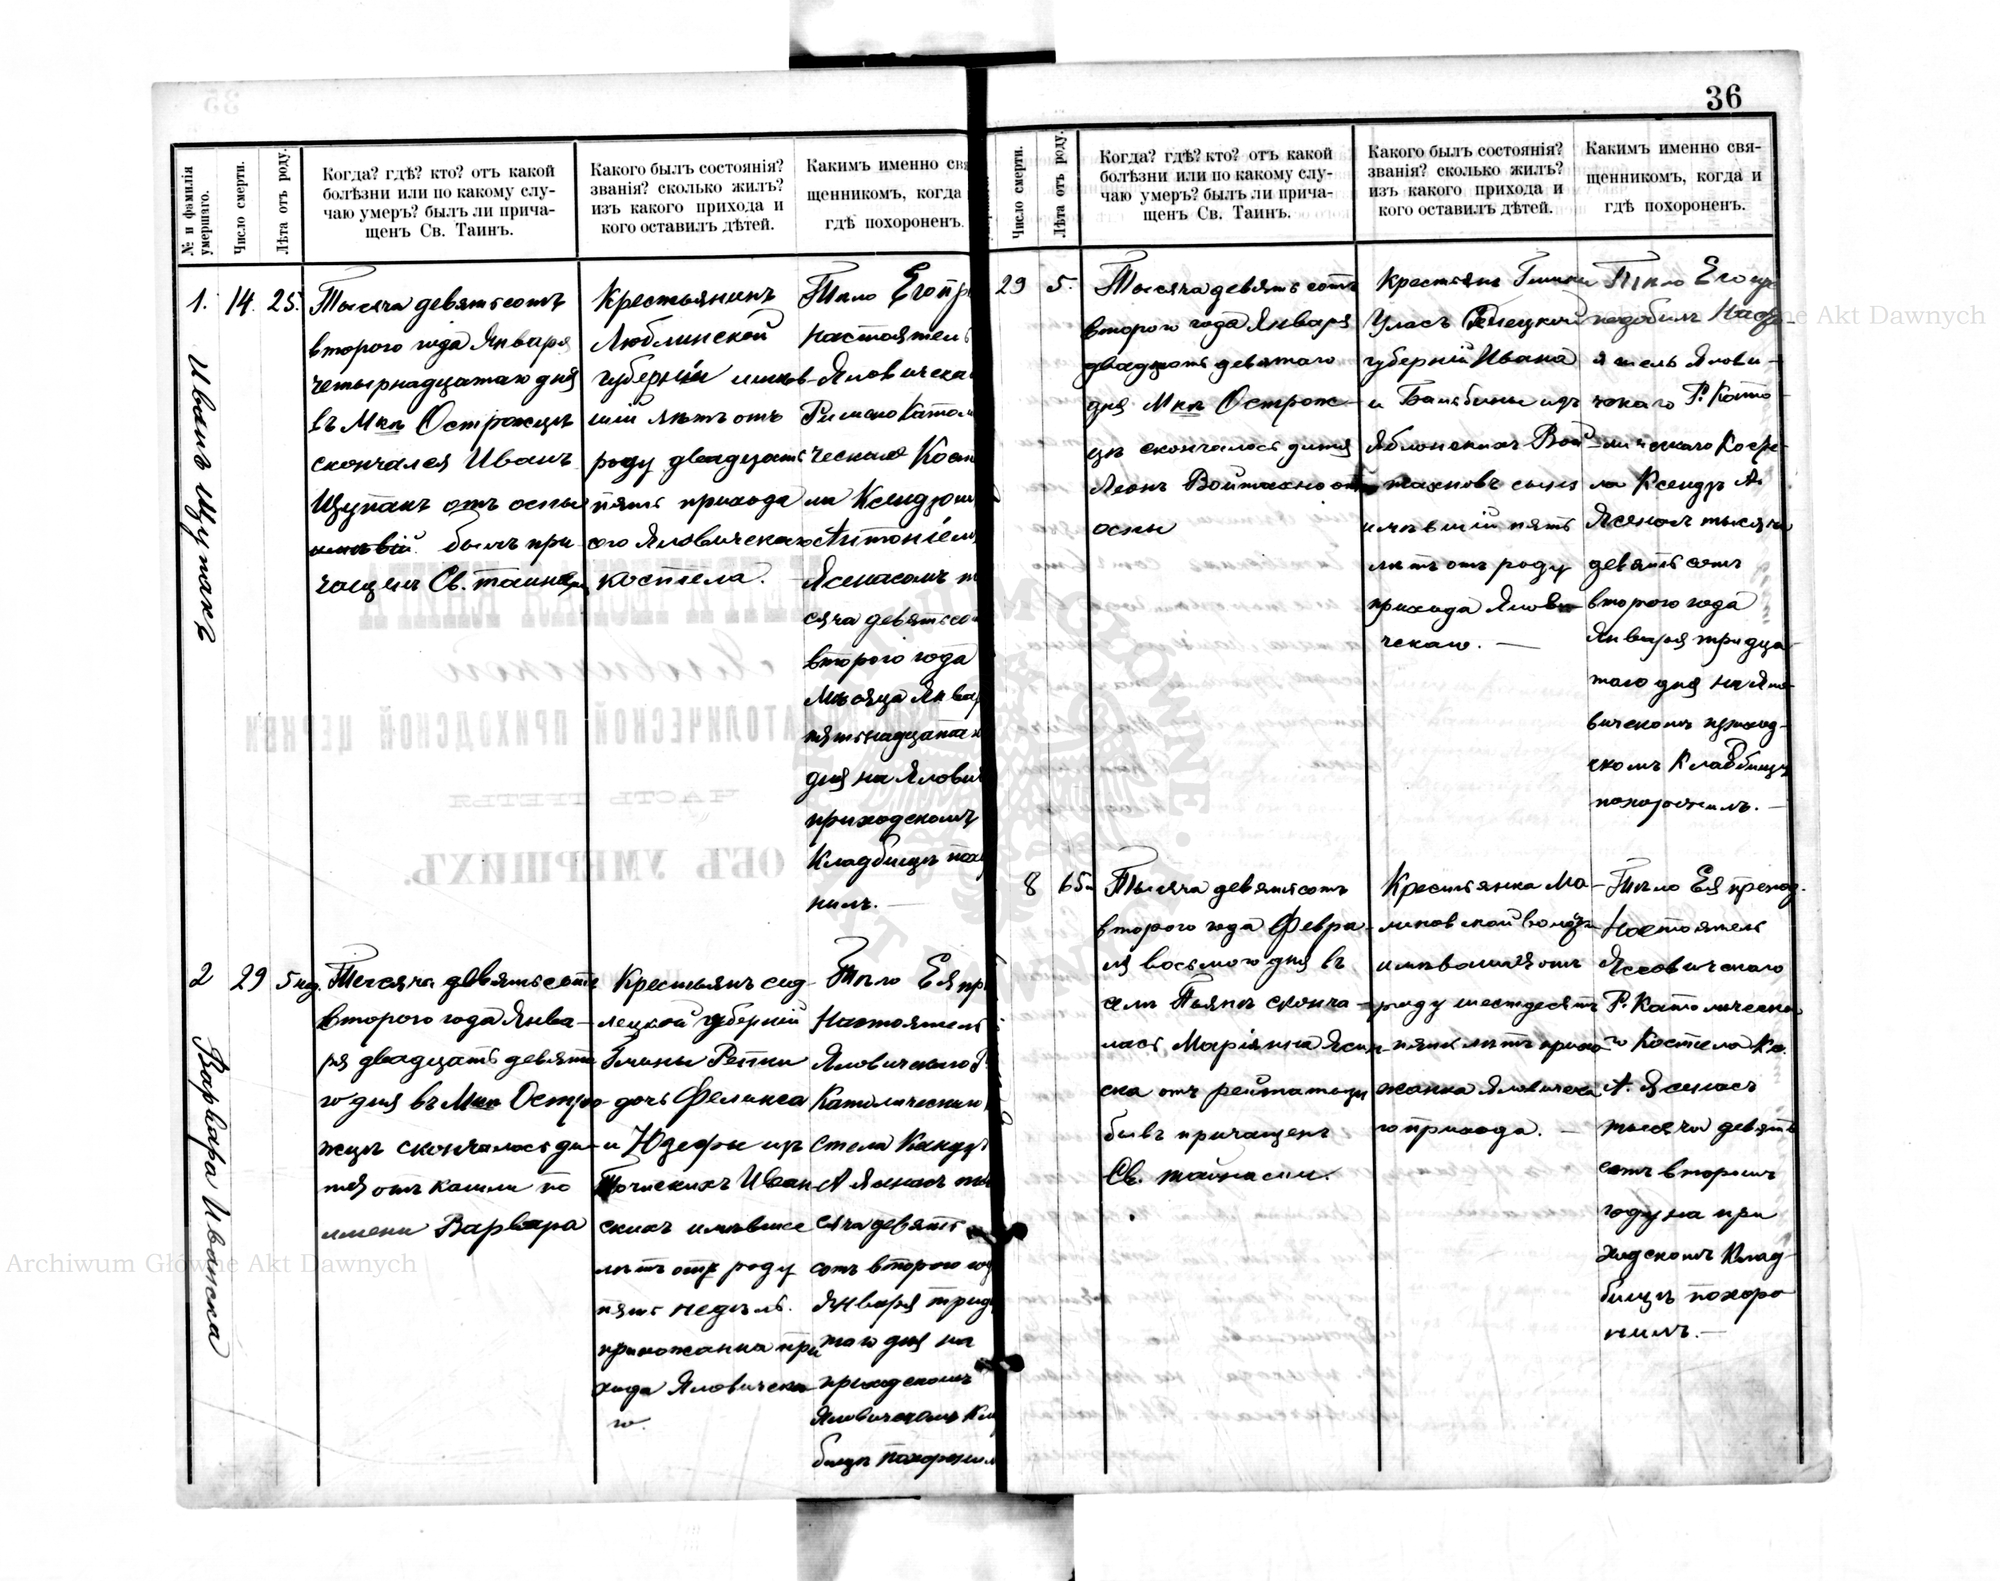 36
№ и фамилія умершаго.
Число смерти.
Лѣта отъ роду.
Когда? гдѣ? кто? отъ какой
болѣзни или по какому слу-
чаю умеръ? былъ ли прича-
щенъ Св. Таинъ.
Какого былъ состоянія?
званія? сколько жилъ?
изъ какого прихода и
кого оставилъ дѣтей.
Какимъ именно свя
щенникомъ, когда
гдѣ похороненъ.
1.
Иванъ Щупакъ
14.
25.
Тысяча девятьсотъ
второго года Января
четырнадцатаго дня
въ Мкѣ Острожцѣ
скончался Иванъ
Щупакъ отъ оспы
былъ при-
чащенъ Св. таинъ
Крестьянинъ
Люблинской
губерніи имѣв-
шій лѣтъ отъ
роду двадцать
пять прихода
ого Яловическаго
костела.
Тѣло Его пр
настоятель
Яловическа
Римско Катол
ческаго Кост
ла Ксендзом
Антоніем
Ясенасомъ т
сяча девятьсо
второго года
Мѣсяца Январ
пятнадцата
дня на Ялович
приходскомъ
Кладбищѣ пох
нилъ. —
2
Варвара Иванска
29
5 нед.
Тысяча девятьсотъ
второго года Янва-
ря двадцать девята
го дня въ Мкѣ Остро
жцѣ скончалось ди-
тя отъ кашли по
имени Варвара
Крестьянъ сед-
лецкой губерніи
Гмины Репки
дочь Феликса
и Юзефы изъ
Иван
скихъ имѣвшее
лѣтъ отъ роду
пять недѣль.
прихожанка при
хода Яловическа
го.
Тѣло Ея пр
Настоятель
Яловическаго Р.
Католическаго
стела Ксендз
А Ясенасъ ты
сяча девять
сотъ второго год
Января тридц
таго дня на
приходскомъ
Яловическомъ Кла
бищѣ похоронил
Число смерти.
Лѣта отъ роду.
Когда? гдѣ? кто? отъ какой
болѣзни или по какому слу-
чаю умеръ? былъ ли прича-
щенъ Св. Таинъ.
Какого былъ состоянія?
званія? сколько жилъ?
изъ какого прихода и
кого оставилъ дѣтей.
Какимъ именно свя-
щенникомъ, когда и
гдѣ похороненъ.
29
5.
Тысяча девятьсотъ
второго года Января
двадцать девятаго
дня Мкѣ Острож-
цѣ скончалось дитя
Леонъ Войтахно отъ
оспы
Крестьянъ Гмины
губерніи Ивана
и изъ
Яблонскихъ Вой-
тахновъ сынъ
имѣвшій пять
лѣтъ отъ роду
прихода Ялови-
ческаго. —
Тѣло Его пре
Насто-
ятель Ялови-
ческаго Р. Като-
лическаго Косте-
ла Ксендзъ А.
Ясенасъ тысяча
девятьсотъ
второго года
Января тридца
таго дня на Яло-
вическомъ приход-
скомъ Кладбищѣ
похоронилъ. —
8
65
Тысяча девятьсотъ
второго года Февра-
ля восьмого дня въ
селѣ Пьянѣ сконча-
лась Маріянна Ясин-
ска отъ
бывъ причащенъ
Св. тайнами.
Крестьянка Ма-
линовской волости
имѣвшая отъ
роду шестдесятъ
пять лѣтъ прихо
жанка Яловическа
го прихода. —
Тѣло Ея препод.
Настоятель
Яловическаго
Р. Католическа
го Костела Кс.
А. Ясенасъ
тысяча девять
сотъ второмъ
году на при
ходскомъ Клад-
бищѣ похоро
нилъ. —
Archiwum Główne Akt Dawnych
Archiwum Główne Akt Dawnych